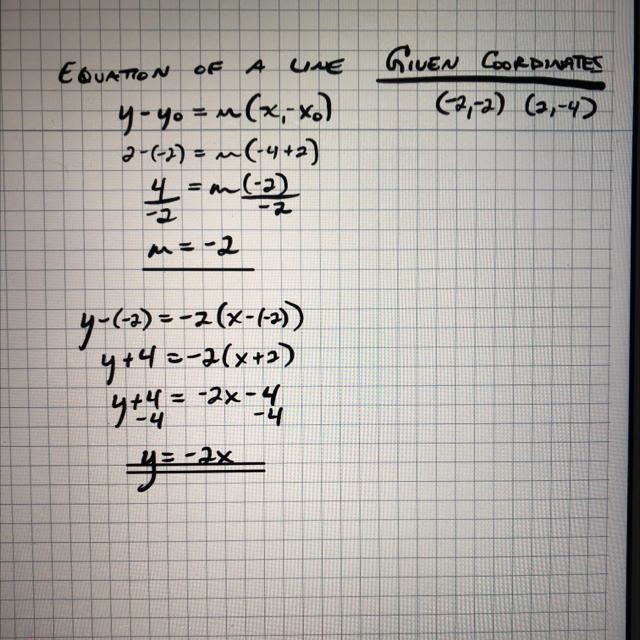 EQUATION OF A LINE
GIVEN COORDINATES
(-2,-2) (2,-4)
y-y₀ = m(x,-x₀)
2-(-2) = m(-4+2)
4/-2 = m(-2)/-2
m = -2
y-(-2) = -2(x-(-2))
y+4 = -2(x+2)
y+4 = -2x-4
-4 -4
y = -2x